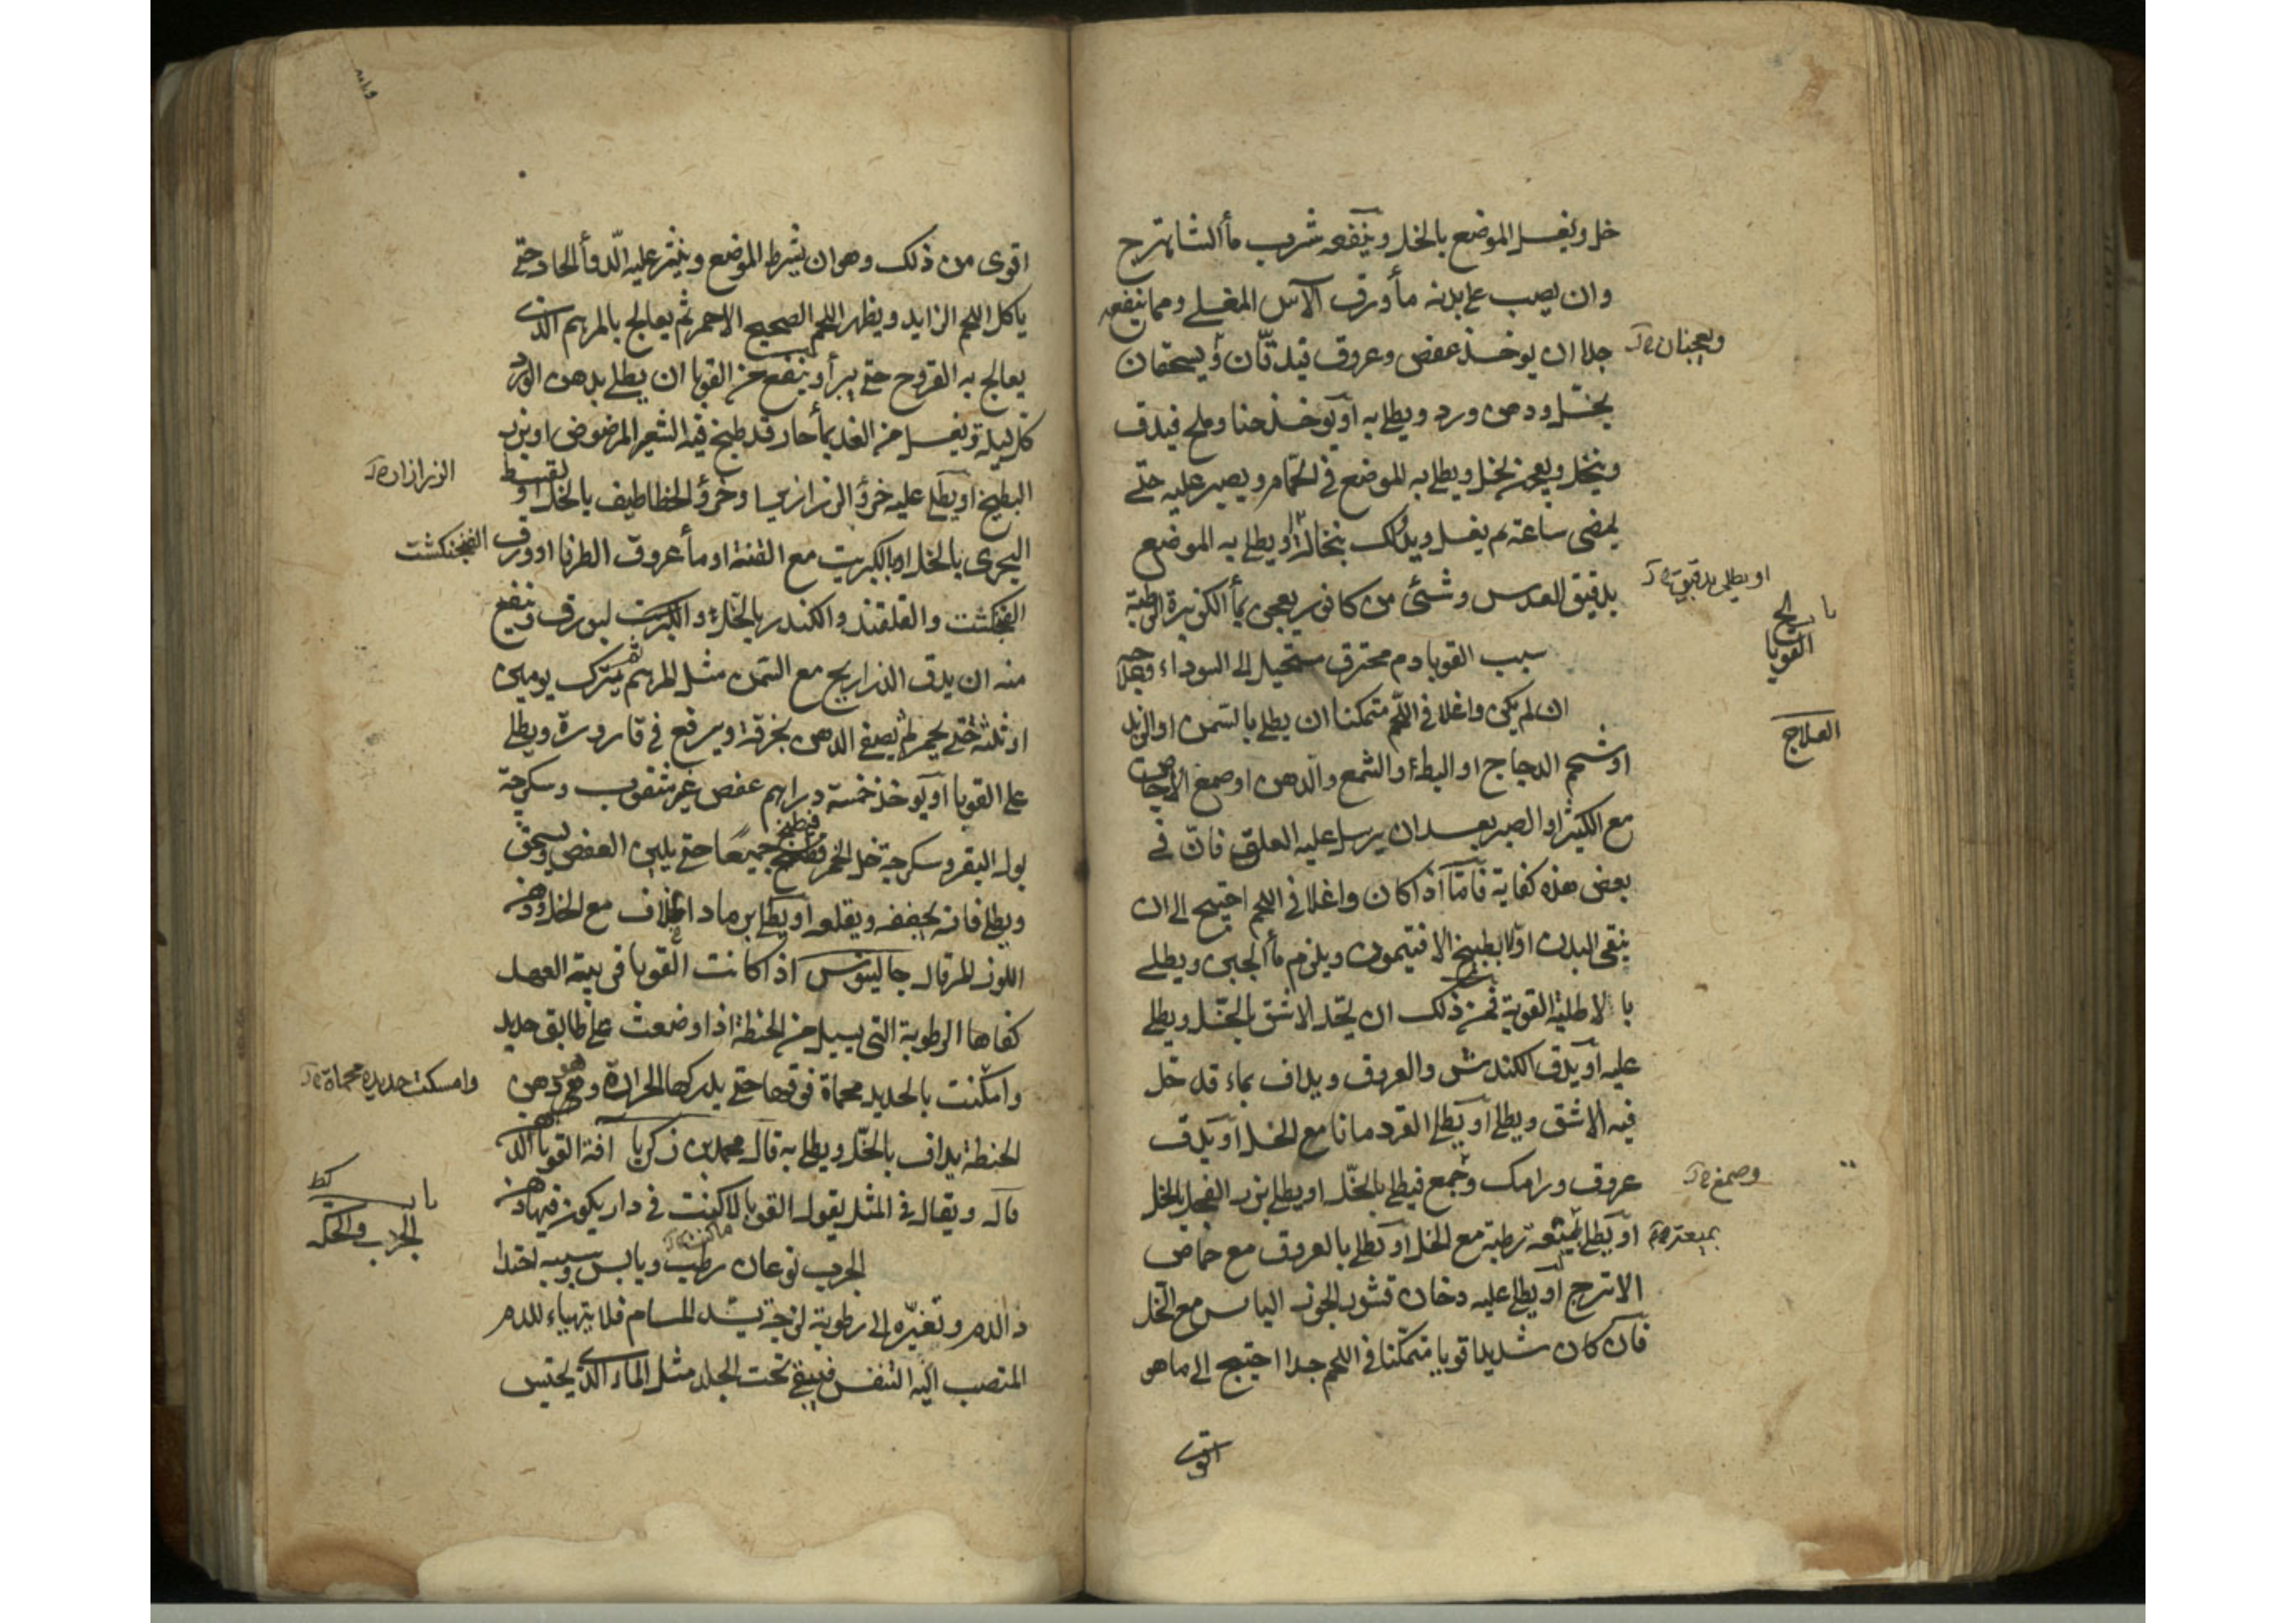 خل ويغسل الموضع بالخل وينفعه شرب مأ الشاهترج
وان يصب على بدنه مأ ورق الآس المغلي ومما ينفعه
جدا ان يوخذ عفص وعروق فيدقان ويسحقان
ويعجنان
بخل ودهن ورد ويطلى به او يوخذ حنا وملح فيدق
وينخل ويعجن بخل ويطلى به الموضع في الحمام ويصبر عليه حتى
يمضى ساعة ثم يغسل ويدلك بنخالة او يطلى به الموضع
او يطلى بدقيق
بدقيق العدس وشئ من كافور يعجن بمأ الكزبرة الرطبة
باب كح
القوبا
سبب القوبا دم محترق مستحيل الى السوداء وعلاجه
العلاج
ان لم يكن واغلا في اللحم متمكنا ان يطلى بالسمن او الزبد
او شحم الدجاج او البط او الشمع والدهن او صمغ الاجاص
مع الكثيرا او الصبر بعد ان يرسل عليه العلق فان في
بعض هذه كفاية فأما اذا كان واغلا في اللحم احتيج الى ان
ينقى البدن اولا بطبيخ الافتيمون ويلزم مأ الجبن ويطلى
بالاطلية القوية فمن ذلك ان يحل الاشق بالخل ويطلى
عليه او يدق الكندش والعروق ويداف بماء قد حل
فيه الاشق ويطلى او يطلى القردمانا مع الخل او يدق
عروق ورامك وجمع فيطلى بالخل او يطلى بزر الفجل بالخل
وصمغ
او يطلى بميعة رطبة مع الخل او يطلى بالعروق مع حماض
بميعة
الاترج او يطلى عليه دخان قشور الجوز اليابس مع الخل
فان كان شديدا قويا متمكنا في اللحم جدا احتيج الى ما هو
اقوى
اقوى من ذلك وهو ان يشرط الموضع وينثر عليه الدوأ الحاد حتى
ياكل اللحم الزايد ويظهر اللحم الصحيح الاحمر ثم يعالج بالمرهم الذي
يعالج به القروح حتى يبرأ وينفع من القوبا ان يطلى بدهن الورد
كل ليلة ويغسل من الغد بمأ حار قد طبخ فيه الشعير المرضوض او بزر
البطيخ او يطلى عليه خرؤ الزرازير وخرؤ الخطاطيف بالخل او بقسط
الزرازير
البحرى بالخل او بالكبريت مع القنة او مأ عروق الطرفا او ورق
الفنجنكشت
الفنجنكشت والقلقند والكندر بالخل والكبريت لبورق وينفع
منه ان يدق الذراريح مع السمن مثل المرهم ثم يترك يومين
او ثلثة حتى يحمر ثم يصفى الدهن بخرقة ويرفع في قارورة ويطلى
على القوبا او يوخذ خمسة دراهم عفص غير مثقوب وسكرجة
بول البقر وسكرجة خل الخمر فيطبخ جميعا حتى يلين العفص ويسحق
ويطلى فانه يجففه ويقلعه او يطلى برماد الخلاف مع الخل ودهن
اللوز المر قال جالينوس اذا كانت القوبا قريبة العهد
كفاها الرطوبة التى يسيل من الحنطة اذا وضعت على طابق حديد
وامكنت بالحديد محماة فوقها حتى يدركها الحرارة وهو دهن
وامسكت حديدة محماة
الحنطة يداف بالخل ويطلى به قال محمد بن زكريا آفة القوبا الدهن
قال ويقال في المثل يقول القوبا لا كنت في دار يكون فيها دهن
باب كط
الجرب والحكة
الجرب نوعان رطب ويابس وسببه احتدا
د الدم وتغيره الى رطوبة لزجة يسد المسام فلا يتهياء للدم
المنصب اليه التنفس فيبقى تحت الجلد مثل الماء الذى يحتبس